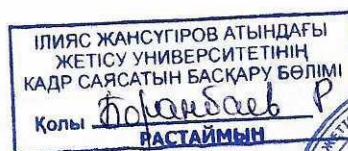 ІЛИЯС ЖАНСҮГІРОВ АТЫНДАҒЫ
ЖЕТІСУ УНИВЕРСИТЕТІНІҢ
КАДР САЯСАТЫН БАСҚАРУ БӨЛІМІ
Қолы Боранбаев Р
РАСТАЙМЫН